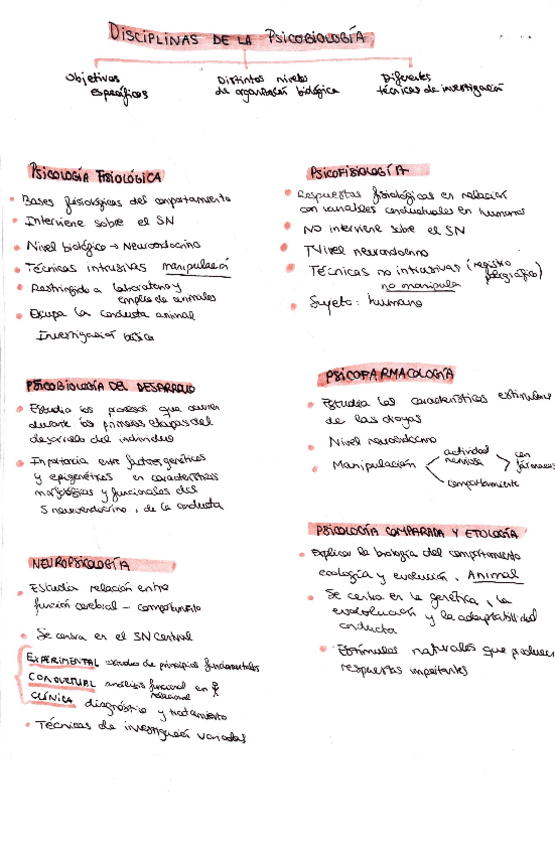 DISCIPLINAS DE LA PSICOBIOLOGÍA
Objetivos
específicos
Distintos niveles
de organización biológica
Diferentes
técnicas de investigación
PSICOLOGÍA FISIOLÓGICA
Bases fisiológicas del comportamiento
Interviene sobre el SN
Nivel biológico → Neuroendocrino
Técnicas intrusivas manipulación
Restringido a laboratorio y
empleo de animales
Ocupa la conducta animal
Investigación básica
PSICOBIOLOGÍA DEL DESARROLLO
Estudia los procesos que ocurren
durante las primeras etapas del
desarrollo del individuo
Importancia entre factores genéticos
y epigenéticos en características
morfológicas y funcionales del
S neuroendocrino, de la conducta
NEUROPSICOLOGÍA
Estudia relación entre
función cerebral - comportamiento
Se centra en el SN Central
EXPERIMENTAL estudio de principios fundamentales
CONDUCTUAL análisis funcional en
CLÍNICA diagnóstico y tratamiento
Técnicas de investigación variadas
PSICOFISIOLOGÍA
Respuestas fisiológicas en relación
con variables conductuales en humanos
NO interviene sobre el SN
Nivel neuroendocrino
Técnicas no intrusivas (registro
poligráfico)
no manipula
Sujeto: humano
PSICOFARMACOLOGÍA
Estudia las características
de las drogas
Nivel neuroendocrino
Manipulación
actividad
nerviosa
comportamiento
con
fármacos
PSICOLOGÍA COMPARADA Y ETOLOGÍA
Explicar la biología del comportamiento
ecología y evolución. Animal
Se centra en la genética, la
evolución y la adaptabilidad
conducta
Estímulos naturales que producen
respuestas